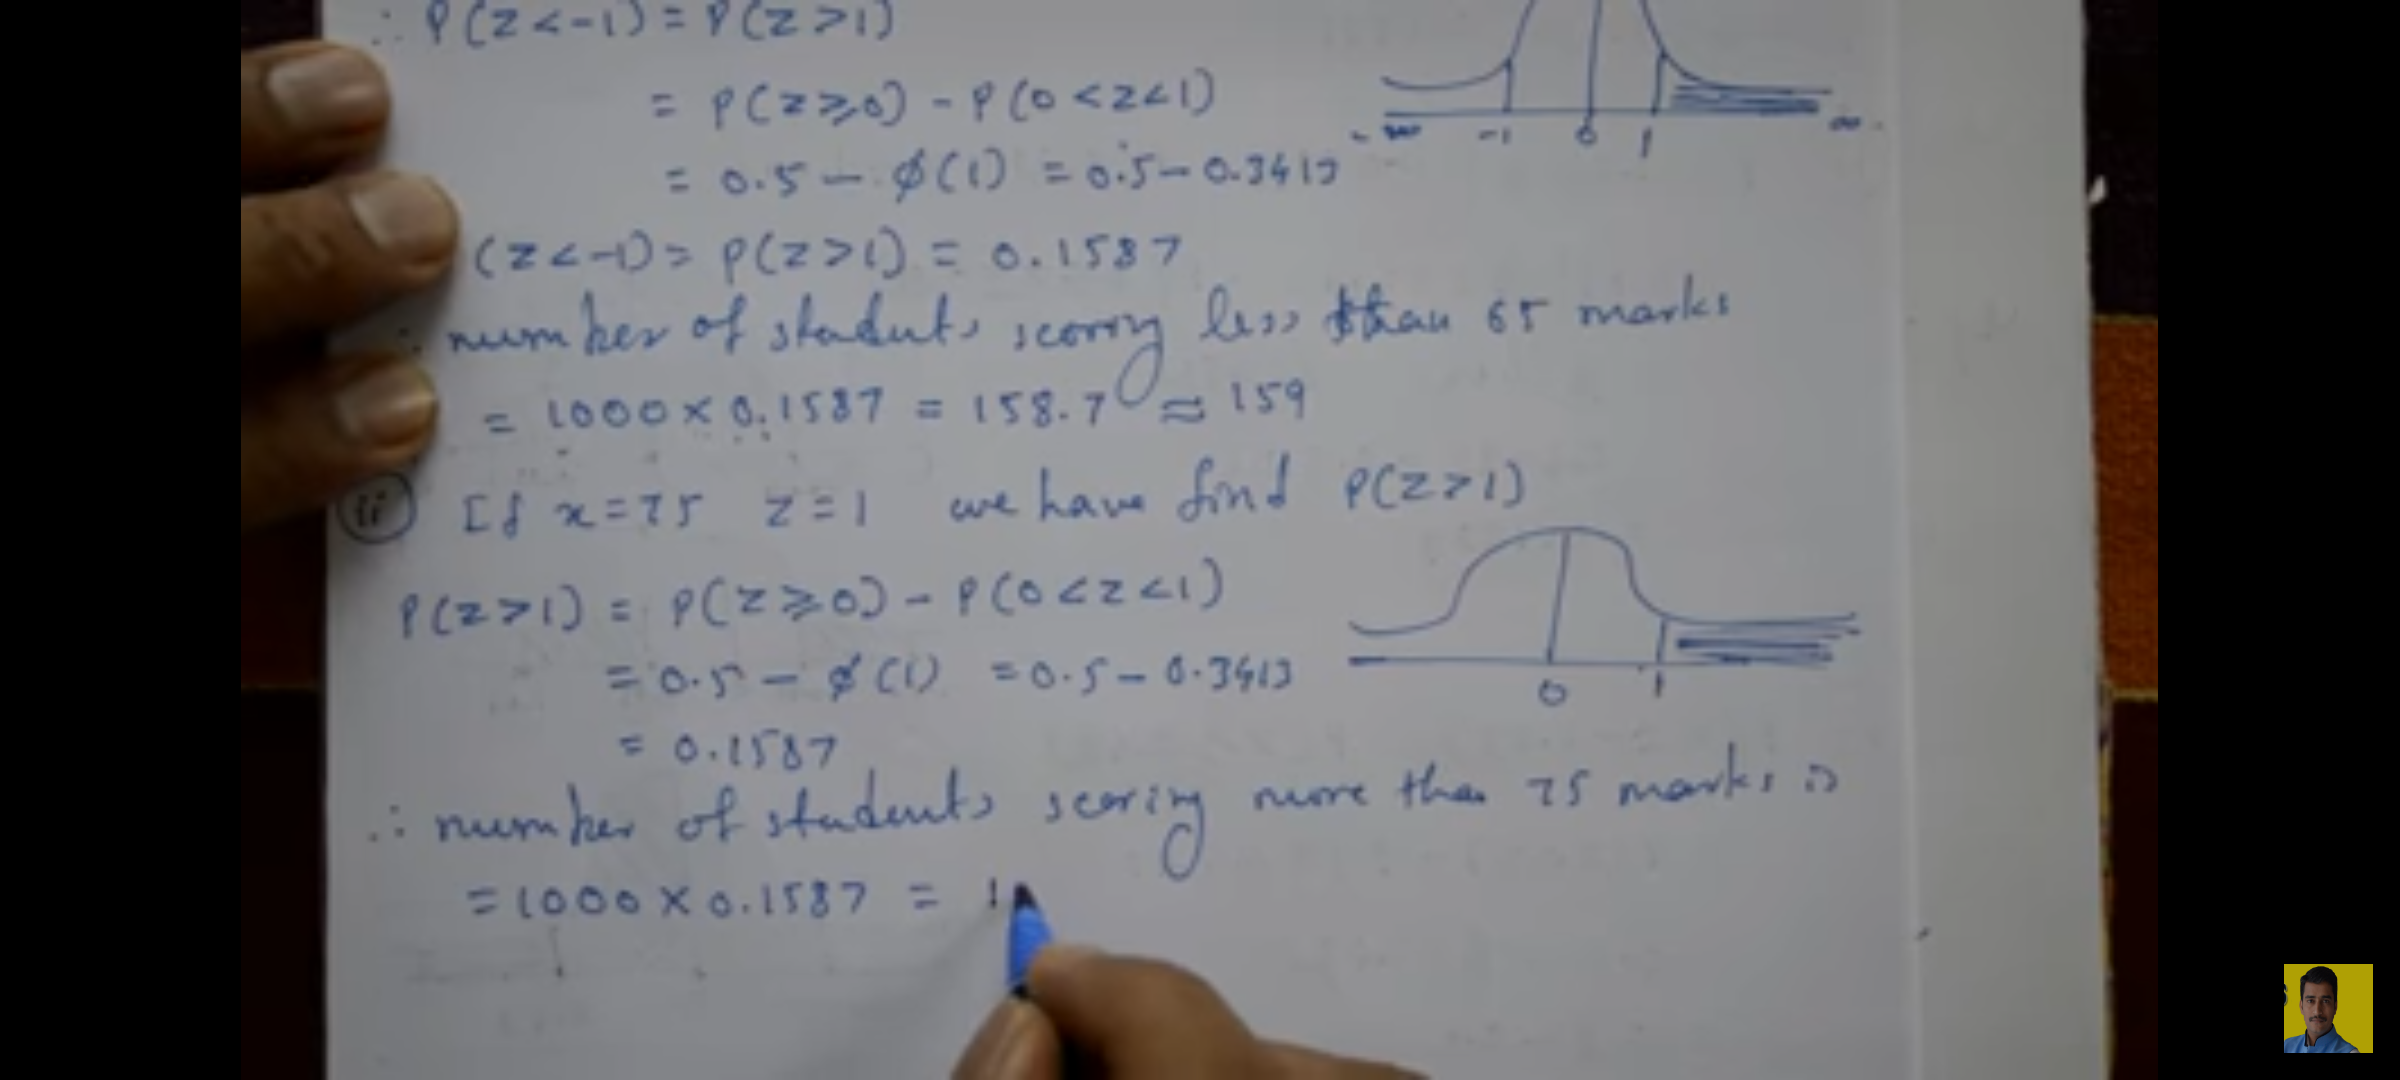 ∴ P(z<-1) = P(z>1)
= P(z≥0) - P(0<z<1)
= 0.5 - φ(1) = 0.5 - 0.3413
-∞ -1 0 1 ∞
(z<-1) = P(z>1) = 0.1587
∴ number of students scoring less than 65 marks
= 1000 × 0.1587 = 158.7 ≈ 159
(ii) If x=75 z=1 we have find P(z>1)
P(z>1) = P(z≥0) - P(0<z<1)
= 0.5 - φ(1) = 0.5 - 0.3413
0 1
= 0.1587
∴ number of students scoring more than 75 marks is
= 1000 × 0.1587 = 1